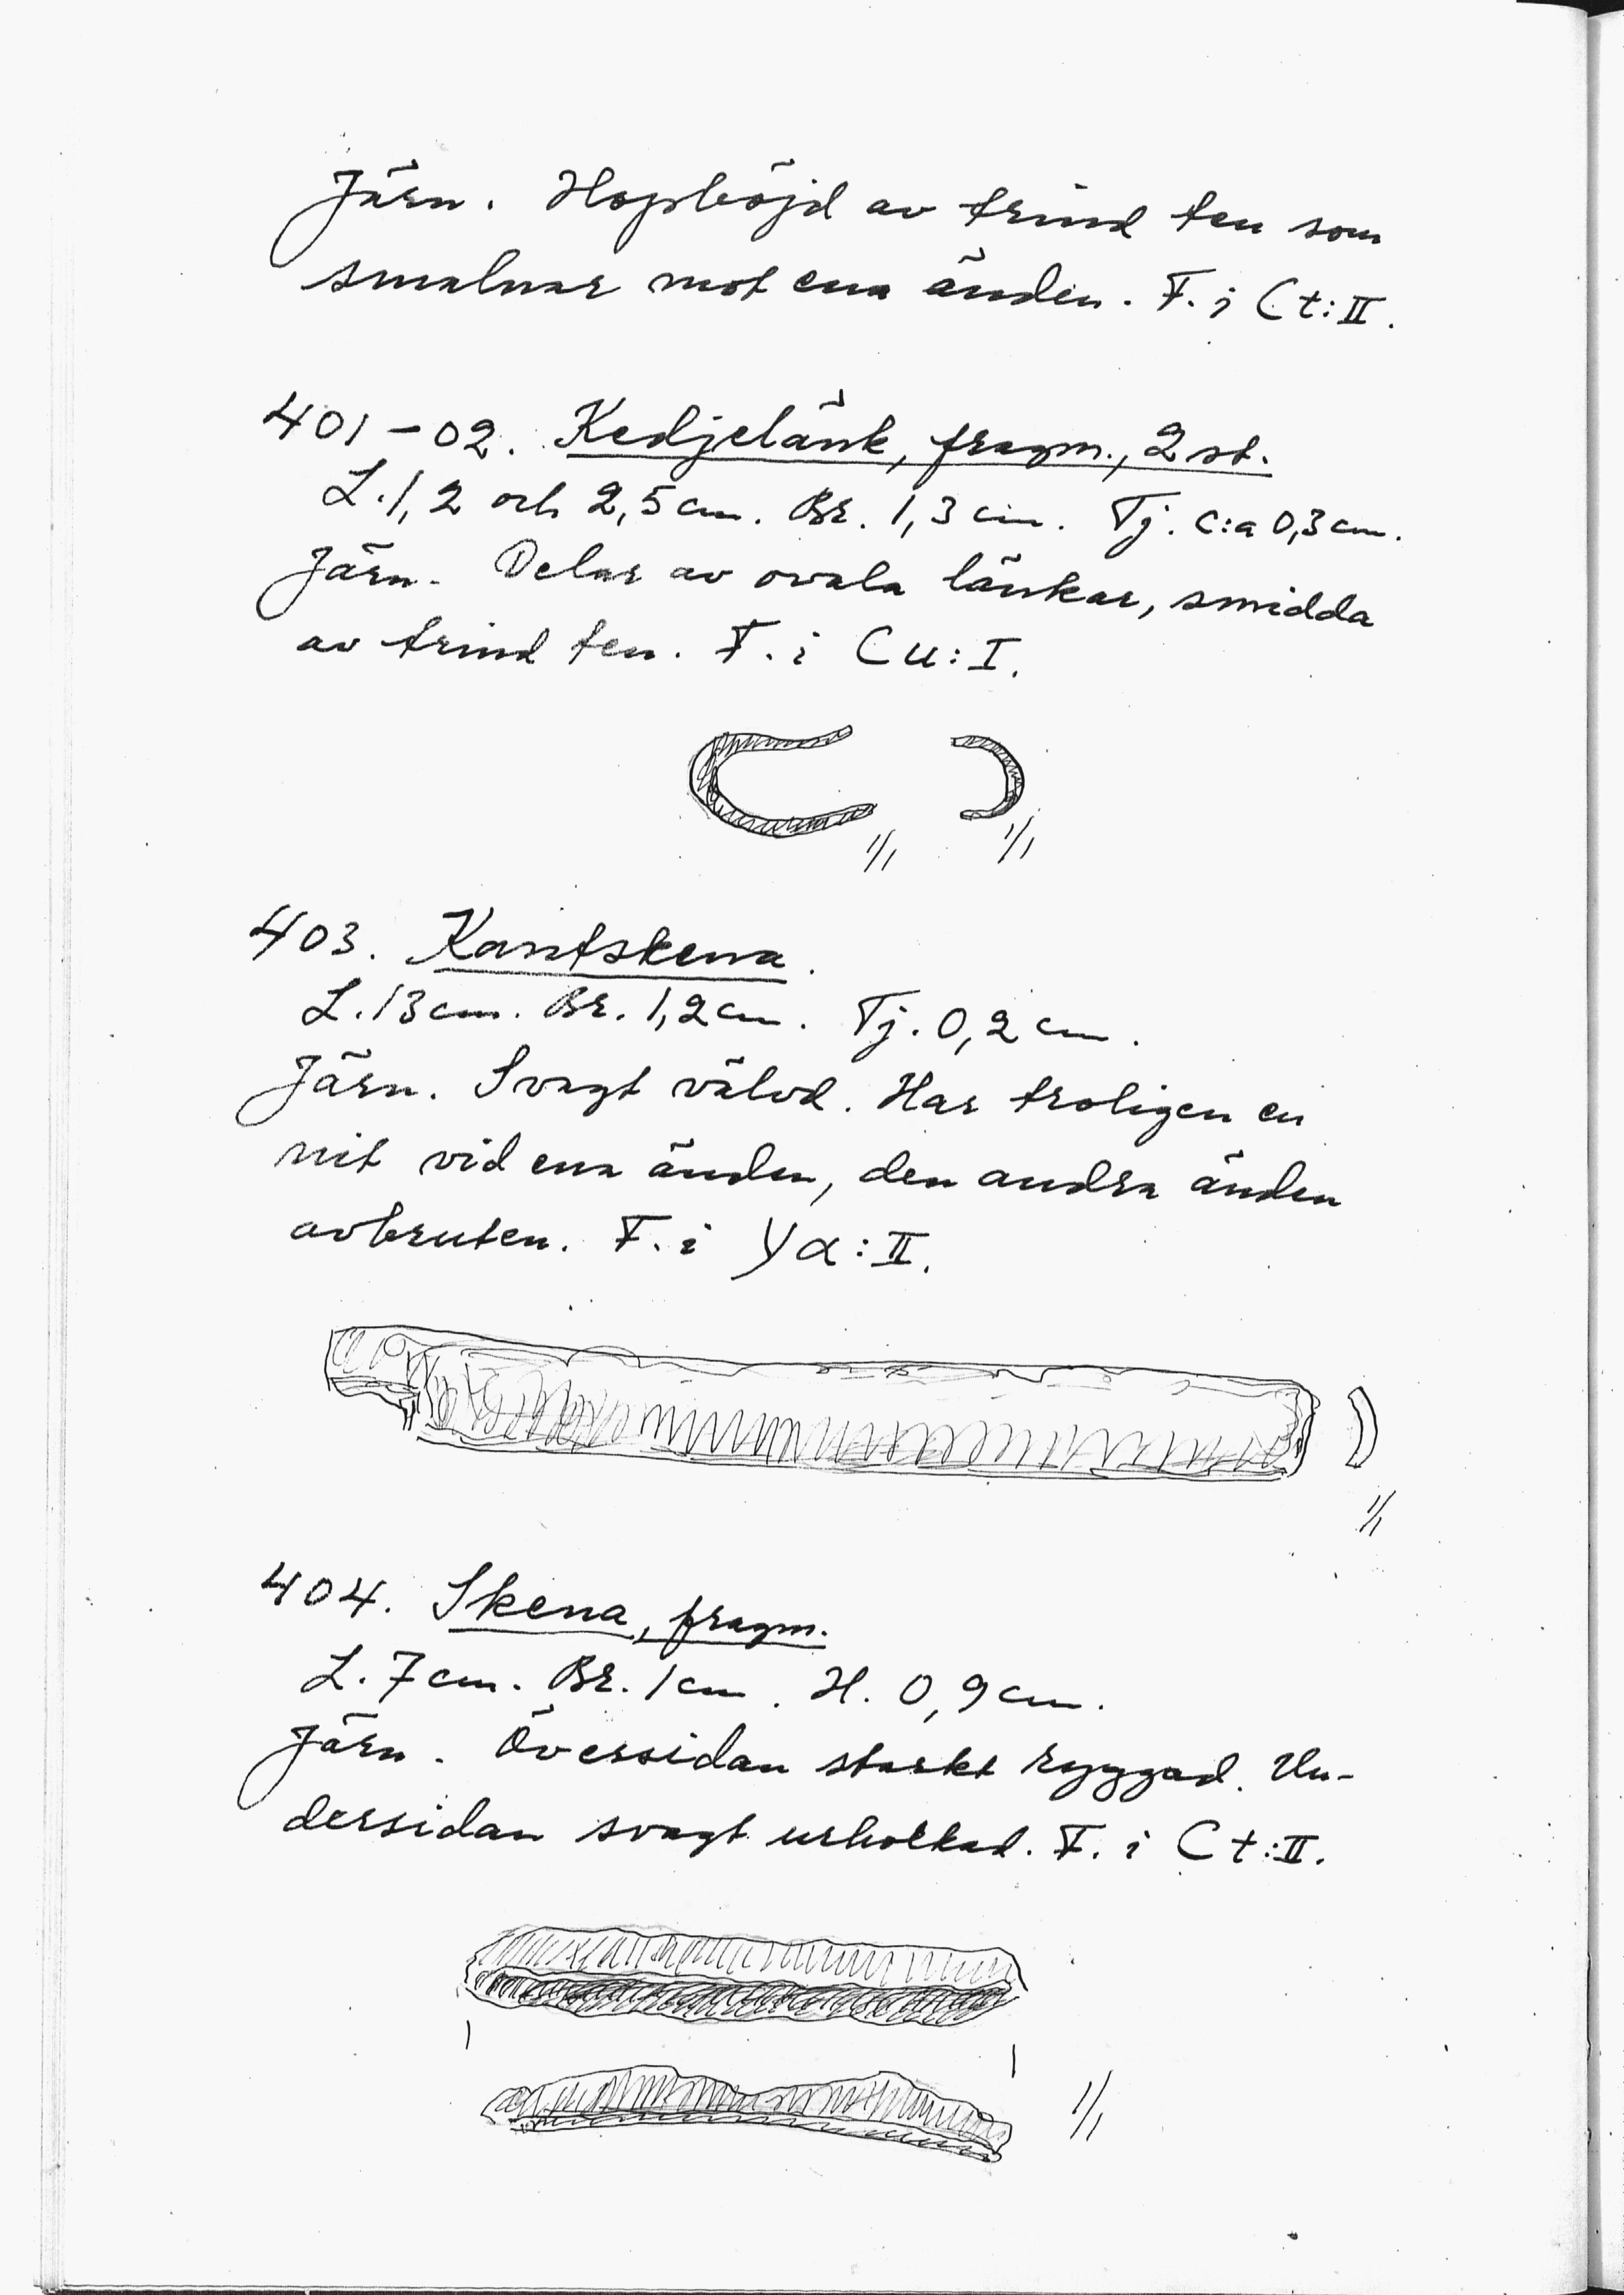 Järn. Hopböjd av trind ten som
smalnar mot ena änden. F. i Ct:II.
401-02. Kedjelänk, fragm., 2 st.
L. 1,2 och 2,5 cm. Br. 1,3 cm. Tj. c:a 0,3 cm.
Järn. Delar av ovala länkar, smidda
av trind ten. F. i Cu:I.
1/1 1/1
403. Kantskena.
L. 13 cm. Br. 1,2 cm. Tj. 0,2 cm.
Järn. Svagt välvd. Har troligen en
nit vid ena änden, den andra änden
avbruten. F. i Yα:II.
1/1
404. Skena, fragm.
L. 7 cm. Br. 1 cm. H. 0,9 cm.
Järn. Översidan starkt ryggad. Un-
dersidan svagt urholkad. F. i Ct:II.
1/1